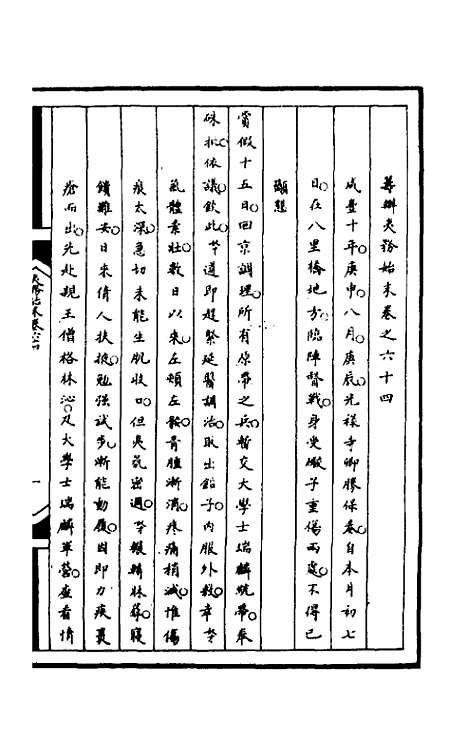 籌辦夷務始末卷之六十四
咸豐十年庚申八月庚辰光祿寺卿勝保奏自本月初七
日在八里橋地方臨陣督戰身受礮子重傷兩處不得已
顯懇
賞假十五日回京調理所有原帶之兵暫交大學士瑞麟統帶奉
硃批依議欽此等遵即趕緊延醫調治取出鉛子內服外敷幸
氣體素壯數日以來左頰左骽骨腫漸消疼痛稍減惟傷
痕太深急切未能生肌收口但夷氛密邇輾轉牀蓐寢
饋難安日來倩人扶掖勉強試步漸能動履因即力疾裹
瘡而出先赴親王僧格林沁及大學士瑞麟軍營查看情